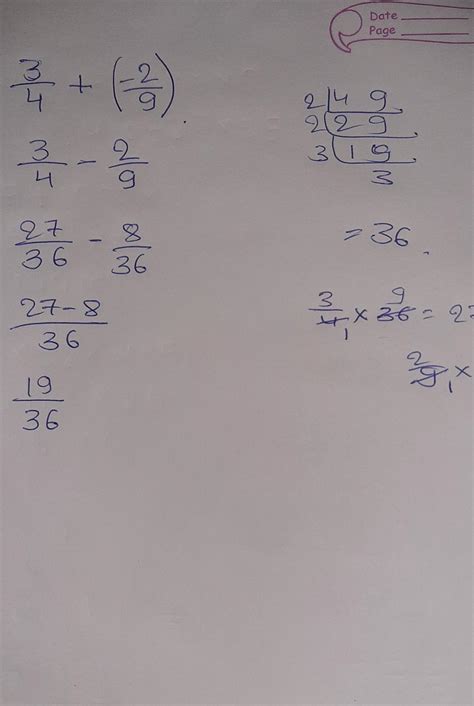 Date
Page
3/4 + (-2/9)
3/4 - 2/9
27/36 - 8/36
27-8/36
19/36
2 | 4 9
2 | 2 9
3 | 1 9
3
= 36
3/4 1 × 36 9 = 27
2/9 1 ×